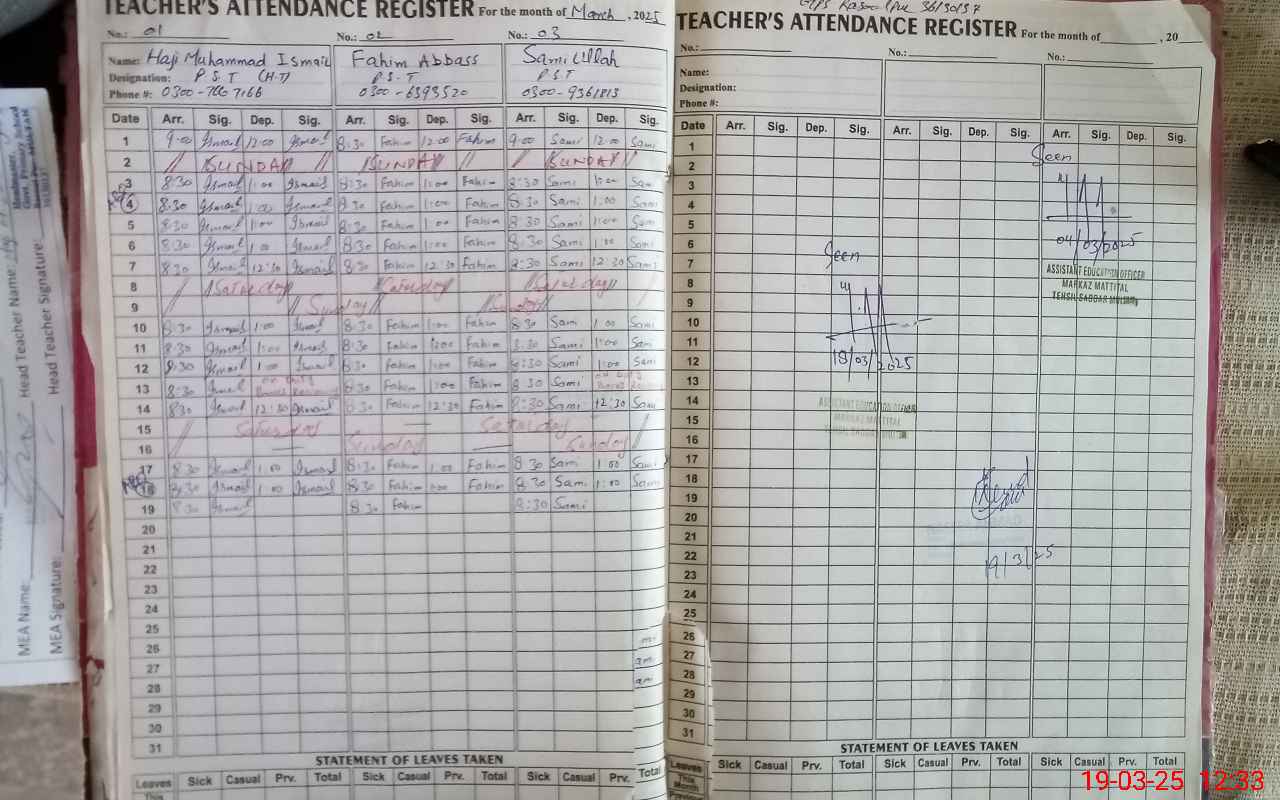 TEACHER'S ATTENDANCE REGISTER For the month of March, 2025
No.: 01 No.: 02 No.: 03
Name: Haji Muhammad Ismail Fahim Abbass Sami Ullah
Designation: P.S.T (H.T) P.S.T P.S.T
Phone #: 0300-7667166 0300-6393520 0300-9361813
Date Arr. Sig. Dep. Sig. Arr. Sig. Dep. Sig. Arr. Sig. Dep. Sig.
1 9:00 Ismail 12:00 Ismail 8:30 Fahim 12:00 Fahim 9:00 Sami 12:00 Sami
2 SUNDAY SUNDAY SUNDAY
3 8:30 Ismail 1:00 Ismail 8:30 Fahim 1:00 Fahim 8:30 Sami 1:00 Sami
4 8:30 Ismail 1:00 Ismail 8:30 Fahim 1:00 Fahim 8:30 Sami 1:00 Sami
5 8:30 Ismail 1:00 Ismail 8:30 Fahim 1:00 Fahim 8:30 Sami 1:00 Sami
6 8:30 Ismail 1:00 Ismail 8:30 Fahim 1:00 Fahim 8:30 Sami 1:00 Sami
7 8:30 Ismail 12:30 Ismail 8:30 Fahim 12:30 Fahim 8:30 Sami 12:30 Sami
8 Saturday Saturday Saturday
9 Sunday Sunday
10 8:30 Ismail 1:00 Ismail 8:30 Fahim 1:00 Fahim 8:30 Sami 1:00 Sami
11 8:30 Ismail 1:00 Ismail 8:30 Fahim 1:00 Fahim 8:30 Sami 1:00 Sami
12 8:30 Ismail 1:00 Ismail 8:30 Fahim 1:00 Fahim 8:30 Sami 1:00 Sami
13 8:30 Ismail on duty 8:30 Fahim 1:00 Fahim 8:30 Sami on duty
14 8:30 Ismail 12:30 Ismail 8:30 Fahim 12:30 Fahim 8:30 Sami 12:30 Sami
15 Saturday Saturday
16 Sunday Sunday
17 8:30 Ismail 1:00 Ismail 8:30 Fahim 1:00 Fahim 8:30 Sami 1:00 Sami
18 8:30 Ismail 1:00 Ismail 8:30 Fahim 1:00 Fahim 8:30 Sami 1:00 Sami
19 8:30 Ismail 8:30 Fahim 8:30 Sami
20
21
22
23
24
25
26
27
28
29
30
31
STATEMENT OF LEAVES TAKEN
Leaves Sick Casual Prv. Total Sick Casual Prv. Total Sick Casual Prv. Total
This
TEACHER'S ATTENDANCE REGISTER For the month of , 20
No.: No.: No.:
Name:
Designation:
Phone #:
Date Arr. Sig. Dep. Sig. Arr. Sig. Dep. Sig. Arr. Sig. Dep. Sig.
1
2
3
4
5
6
7
8
9
10
11
12
13
14
15
16
17
18
19
20
21
22
23
24
25
26
27
28
29
30
31
Seen
04/03/2025
ASSISTANT EDUCATION OFFICER
MARKAZ MATTITAL
TEHSIL SADDAR MULTAN
Seen
18/03/2025
ASSISTANT EDUCATION OFFICER
MARKAZ MATTITAL
TEHSIL SADDAR MULTAN
19/3/25
STATEMENT OF LEAVES TAKEN
Leaves Sick Casual Prv. Total Sick Casual Prv. Total Sick Casual Prv. Total
This
Month
Head Teacher Name:
Head Teacher Signature:
MEA Name:
MEA Signature:
19-03-25 12:33